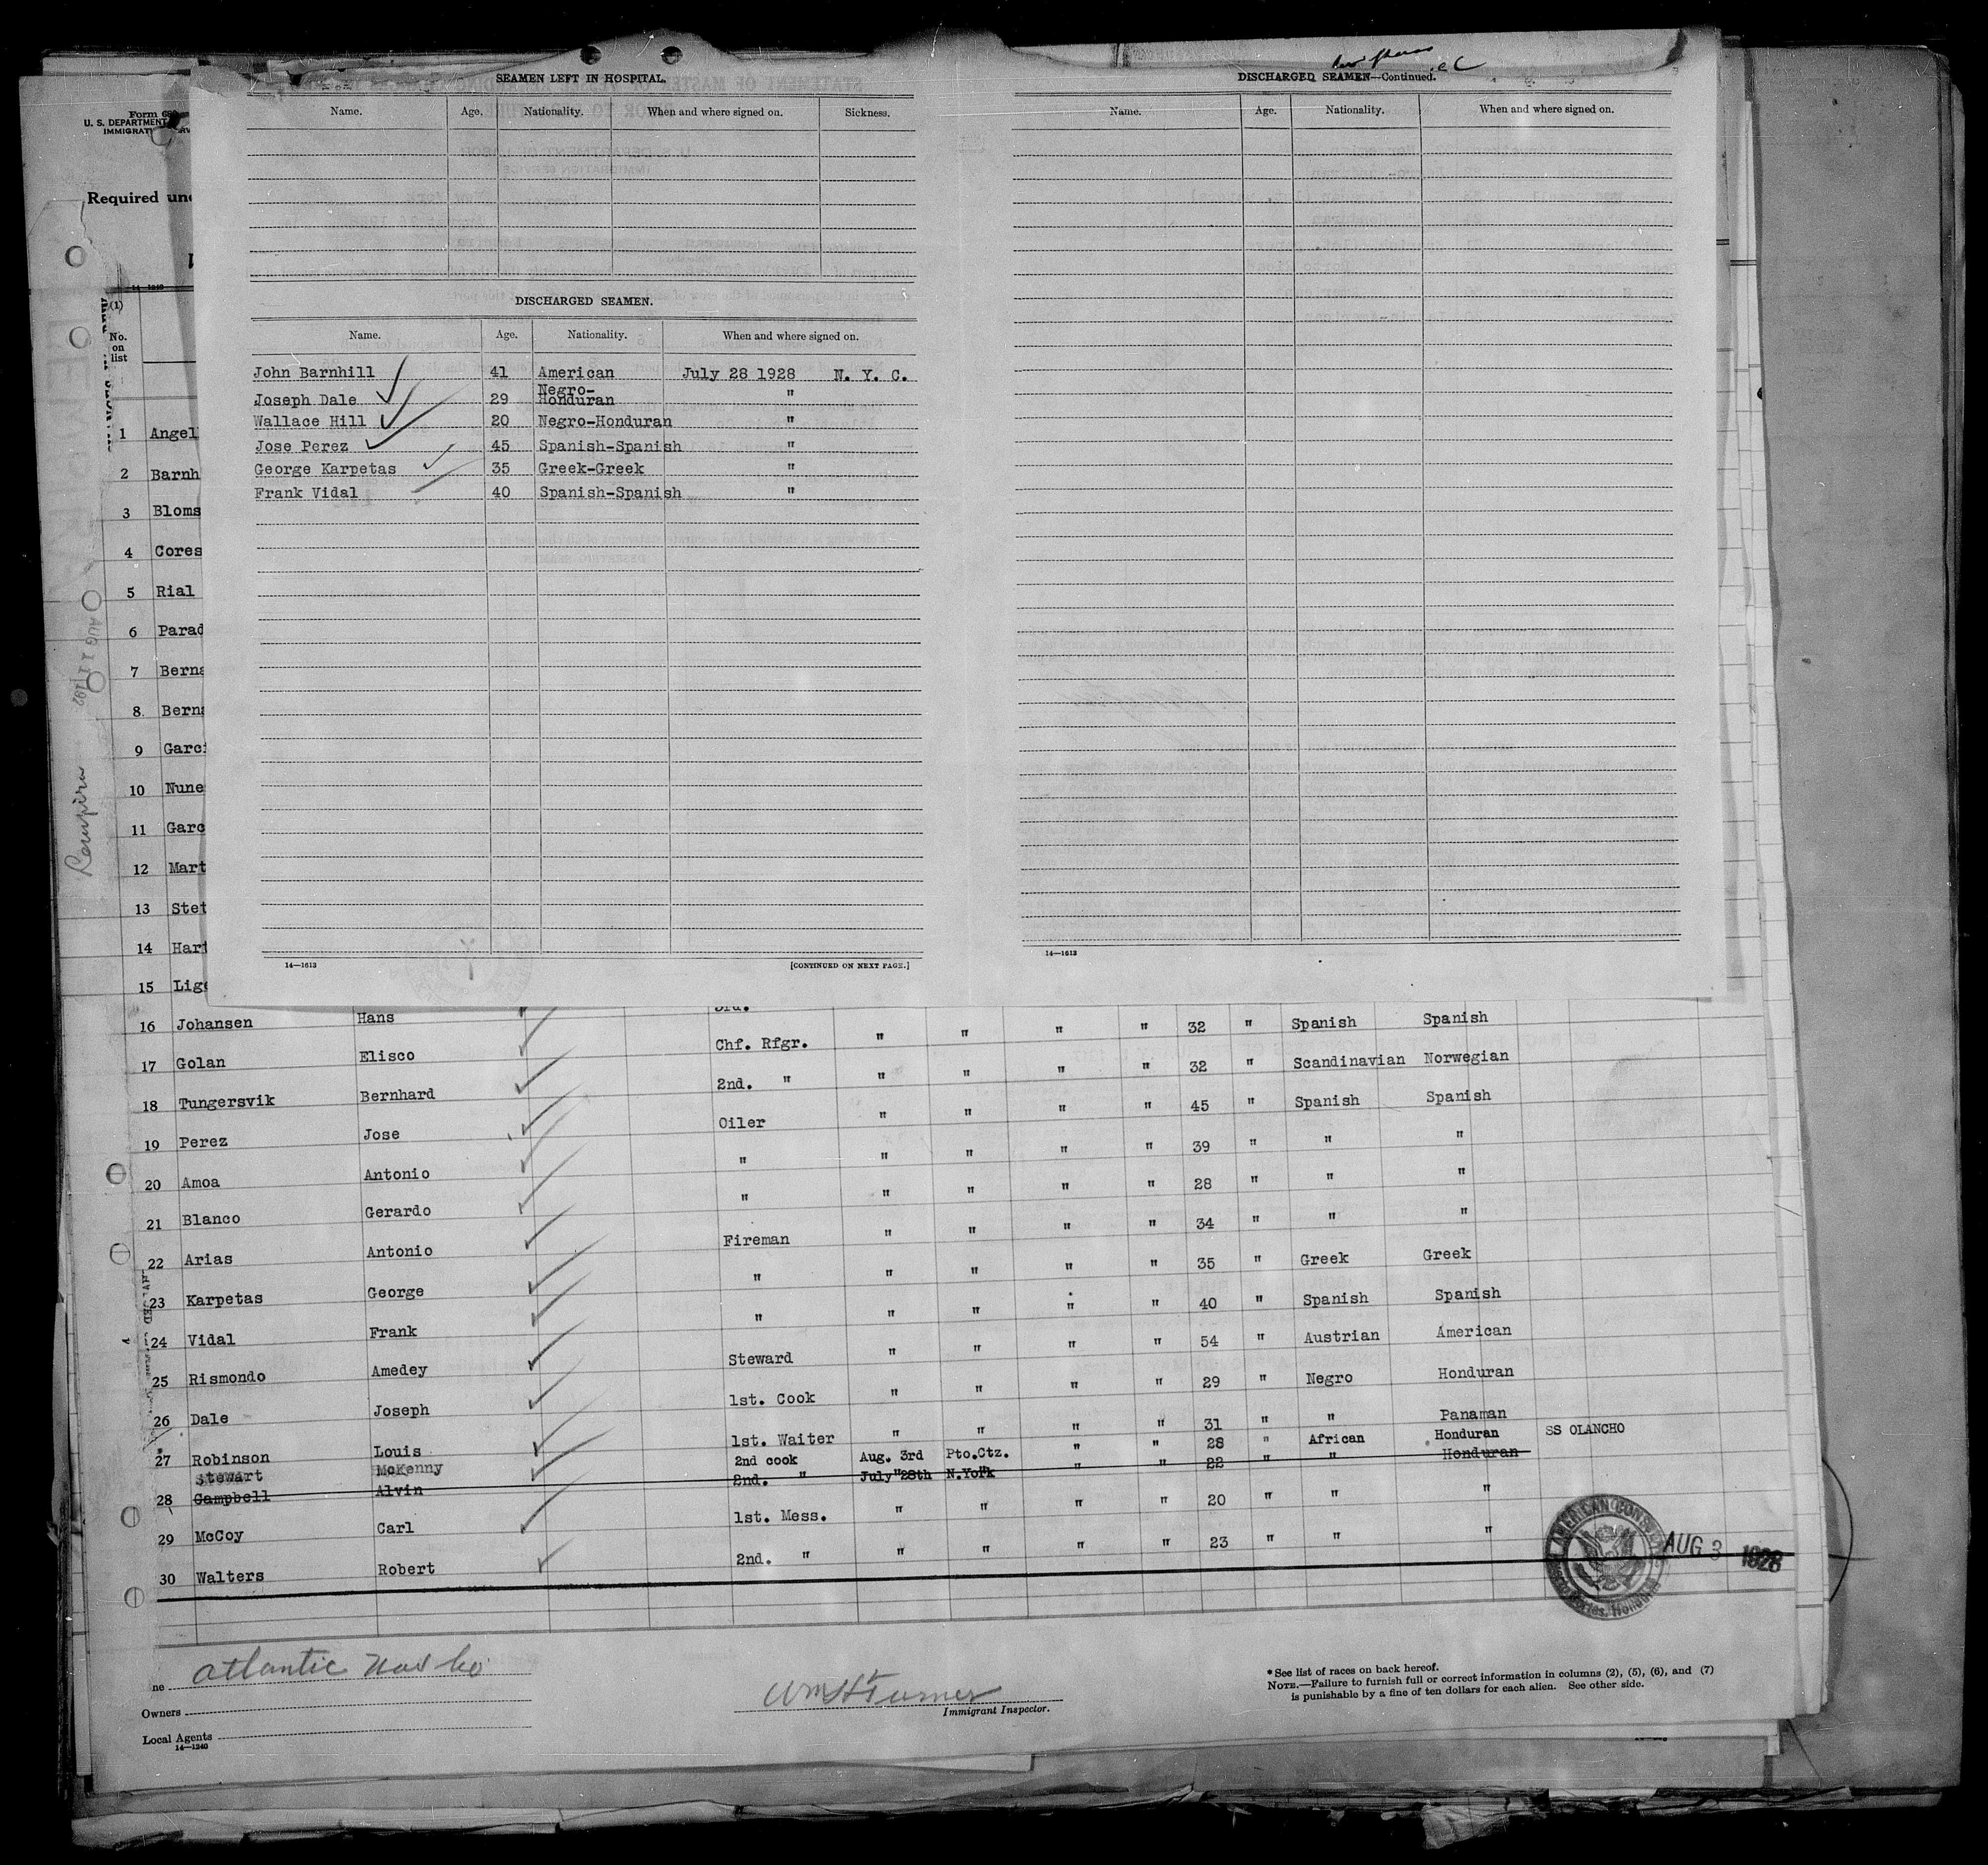 SEAMEN LEFT IN HOSPITAL.
Name. Age. Nationality. When and where signed on. Sickness.
DISCHARGED SEAMEN.
Name. Age. Nationality. When and where signed on.
John Barnhill 41 American July 28 1928 N. Y. C.
Joseph Dale 29 Negro-Honduran "
Wallace Hill 20 Negro-Honduran "
Jose Perez 45 Spanish-Spanish "
George Karpetas 35 Greek-Greek "
Frank Vidal 40 Spanish-Spanish "
14—1613 [CONTINUED ON NEXT PAGE.]
DISCHARGED SEAMEN—Continued.
Name. Age. Nationality. When and where signed on.
14—1613
Form 68
U. S. DEPARTMENT
IMMIGRAT
Required und
14—1240
(1)
No. on list
1 Angel
2 Barnh
3 Bloms
4 Cores
5 Rial
6 Parad
7 Berna
8 Berna
9 Garci
10 Nune
11 Garc
12 Mart
13 Stet
14 Hart
15 Lige
16 Johansen Hans 3rd. " " " " 32 " Spanish Spanish
17 Golan Elisco Chf. Rfgr. " " " " 32 " Scandinavian Norwegian
18 Tungersvik Bernhard 2nd. " " " " " 45 " Spanish Spanish
19 Perez Jose Oiler " " " " 39 " " "
20 Amoa Antonio " " " " " 28 " " "
21 Blanco Gerardo " " " " " 34 " " "
22 Arias Antonio Fireman " " " " 35 " Greek Greek
23 Karpetas George " " " " " 40 " Spanish Spanish
24 Vidal Frank " " " " " 54 " Austrian American
25 Rismondo Amedey Steward " " " " 29 " Negro Honduran
26 Dale Joseph 1st. Cook " " " " 31 " " Panaman
27 Robinson Louis 1st. Waiter " " " " 28 " African Honduran SS OLANCHO
Stewart McKenny 2nd cook Aug. 3rd Pto.Ctz. " " 22 " " Honduran
28 Campbell Alvin 2nd. " July 28th N.York " " 20 " " "
29 McCoy Carl 1st. Mess. " " " " 23 " " "
30 Walters Robert 2nd. " " "
AUG 3 1928
AMERICAN CONSUL
Puerto Cortes, Honduras
Atlantic Nav Co
Owners
Local Agents
14—1240
Wm H Turner
Immigrant Inspector.
* See list of races on back hereof.
NOTE.—Failure to furnish full or correct information in columns (2), (5), (6), and (7)
is punishable by a fine of ten dollars for each alien. See other side.